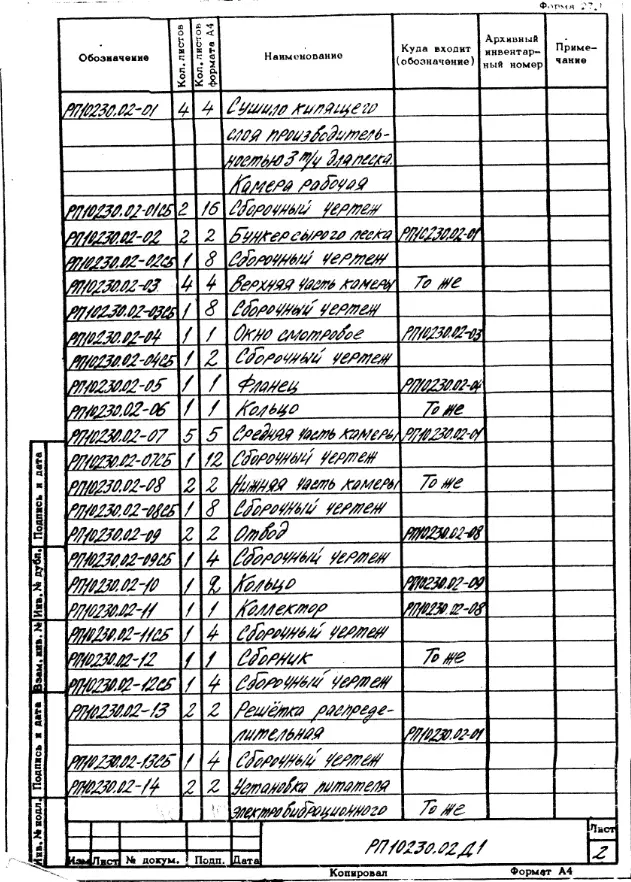 Форма 27.1
Обозначение Кол. листов Кол. листов формата А4 Наименование Куда входит (обозначение) Архивный инвентар-ный номер Приме-чание
РП10230.02-01 4 4 Сушило кипящего
слоя производитель-
ностью 3 т/ч для песка
Камера рабочая
РП10230.02-01СБ 2 16 Сборочный чертеж
РП10230.02-02 2 2 Бункер сырого песка РП10230.02-01
РП10230.02-02СБ 1 8 Сборочный чертеж
РП10230.02-03 4 4 Верхняя часть камеры То же
РП10230.02-03СБ 1 8 Сборочный чертеж
РП10230.02-04 1 1 Окно смотровое РП10230.02-03
РП10230.02-04СБ 1 2 Сборочный чертеж
РП10230.02-05 1 1 Фланец РП10230.02-04
РП10230.02-06 1 1 Кольцо То же
РП10230.02-07 5 5 Средняя часть камеры РП10230.02-01
РП10230.02-07СБ 1 12 Сборочный чертеж
РП10230.02-08 2 2 Нижняя часть камеры То же
РП10230.02-08СБ 1 8 Сборочный чертеж
РП10230.02-09 2 2 Отвод РП10230.02-08
РП10230.02-09СБ 1 4 Сборочный чертеж
РП10230.02-10 1 2 Кольцо РП10230.02-09
РП10230.02-11 1 1 Коллектор РП10230.02-08
РП10230.02-11СБ 1 4 Сборочный чертеж
РП10230.02-12 1 1 Сборник То же
РП10230.02-12СБ 1 4 Сборочный чертеж
РП10230.02-13 2 2 Решётка распреде-
лительная РП10230.02-01
РП10230.02-13СБ 1 4 Сборочный чертеж
РП10230.02-14 2 2 Установка питателя
электровибрационного То же
Инв. № подл. Подпись и дата Взам. инв. № Инв. № дубл. Подпись и дата
Изм Лист № докум. Подп. Дата
РП10230.02Д1
Лист
2
Копировал Формат А4